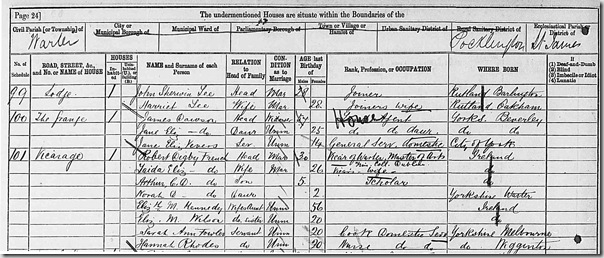 Page 24] The undermentioned Houses are situate within the Boundaries of the
Civil Parish [or Township] of City or Municipal Borough of Municipal Ward of Parliamentary Borough of Town or Village or Hamlet of Urban Sanitary District of Rural Sanitary District of Ecclesiastical Parish or District of
Warter Pocklington St James
No. of Schedule ROAD, STREET, &c., and No. or NAME of HOUSE HOUSES Inhabited Uninhabited (U.), or Building (B.) NAME and Surname of each Person RELATION to Head of Family CONDITION as to Marriage AGE last Birthday of Males Females Rank, Profession, or OCCUPATION WHERE BORN If (1) Deaf-and-Dumb (2) Blind (3) Imbecile or Idiot (4) Lunatic
99 Lodge 1 John Sherwin Lee Head Mar 28 Joiner Rutland
Harriet Lee Wife Mar 28 Joiners wife Rutland Oakham
100 The Grange 1 James Dawson Head 54 House Agent Yorks. Beverley
Jane Eliz do Daur Unm 25 do daur do do
Jane Eliz Ser Unm 14 General Serv. domestic City of York
101 Vicarage 1 Robert Digby French Head Mar 30 Vicar of Warter, Master of Arts Ireland
Trin. Coll. Dublin
do Wife Mar 26 wife do
Arthur C.D. do Son 5 Scholar do
Norah D do Daur 2 Yorkshire Warter
Eliz. M. Kennedy Unm 56 Ireland
Eliz. M. Wilson do Unm 20 do
Sarah Ann Fowles Servant Unm 20 Cook Domestic Serv Yorkshire Melbourne
Hannah Rhodes do Unm 20 Nurse do do do Wigginton